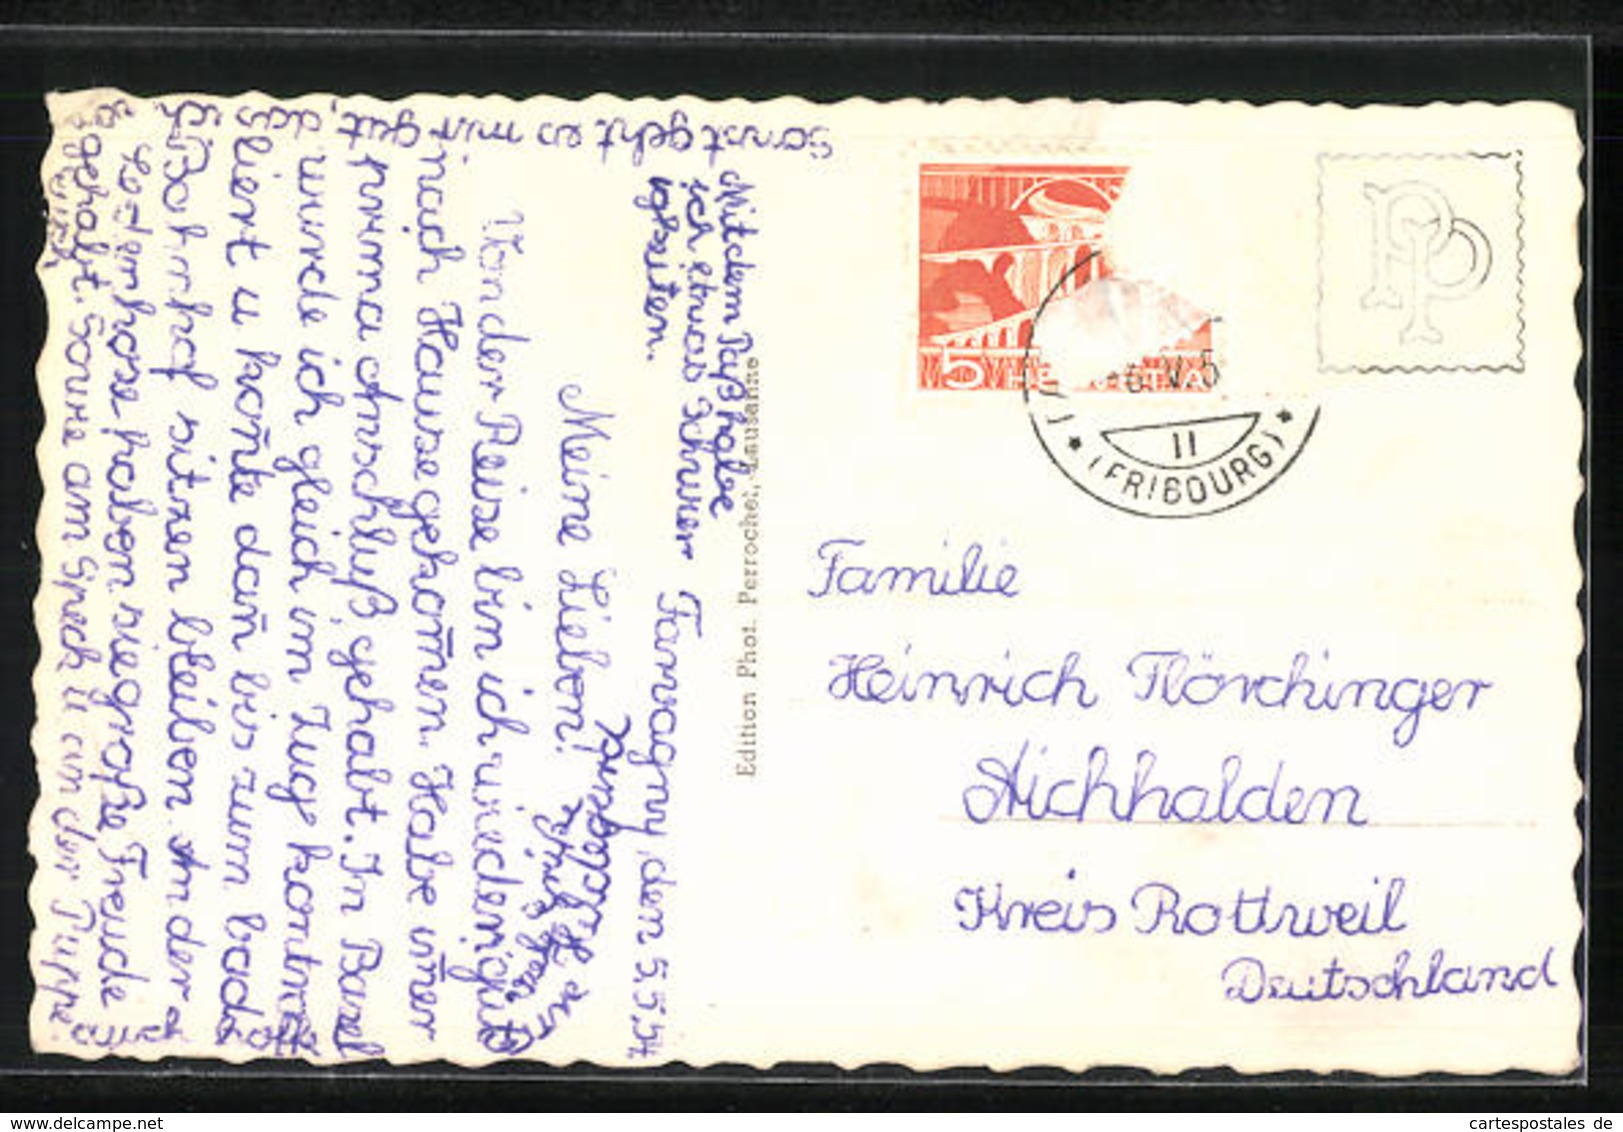 Farvagny, den 5.5.54
Meine Lieben!
Von der Reise bin ich wieder gut
nach Hause gekom̄en. Habe im̄er
prima Anschluß gehabt. In Basel
wurde ich gleich im Zug kontrol
liert u. kon̄te dan̄ bis zum bad.
Bahnhof sitzen bleiben. An der
Lederhose haben sie große Freude
gehabt. Sowie am Speck u. an der Puppe.
Sonst geht es mir gut,
Mit dem Paß habe
ich etwas Schwier
igkeiten.
Edition Phot. Perrochet, Lausanne
5
HELVETIA
6. V. 5
II
(FRIBOURG)
PP
Familie
Heinrich Flörchinger
Aichhalden
Kreis Rottweil
Deutschland
cartespostales de